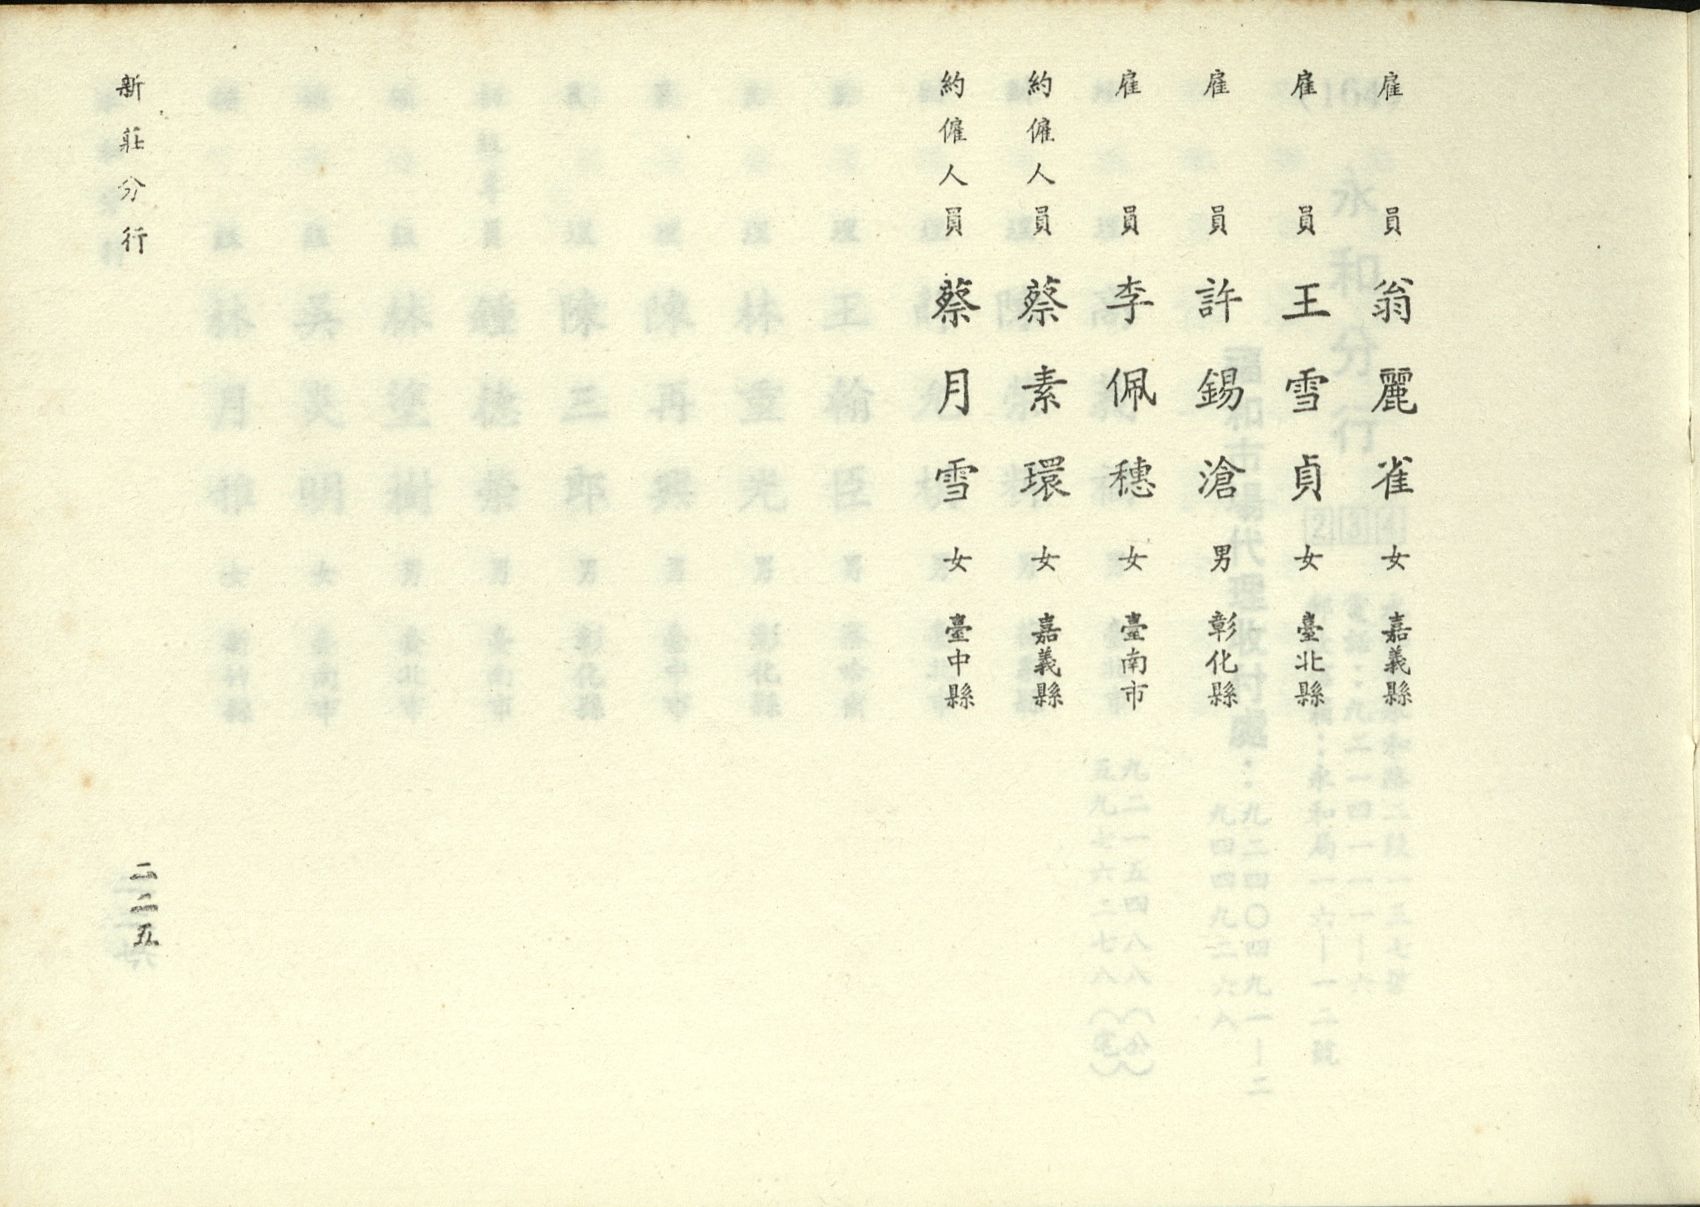 雇員 翁麗雀 女 嘉義縣
雇員 王雪貞 女 臺北縣
雇員 許錫滄 男 彰化縣
雇員 李佩穗 女 臺南市
約僱人員 蔡素環 女 嘉義縣
約僱人員 蔡月雪 女 臺中縣
新莊分行
二二五